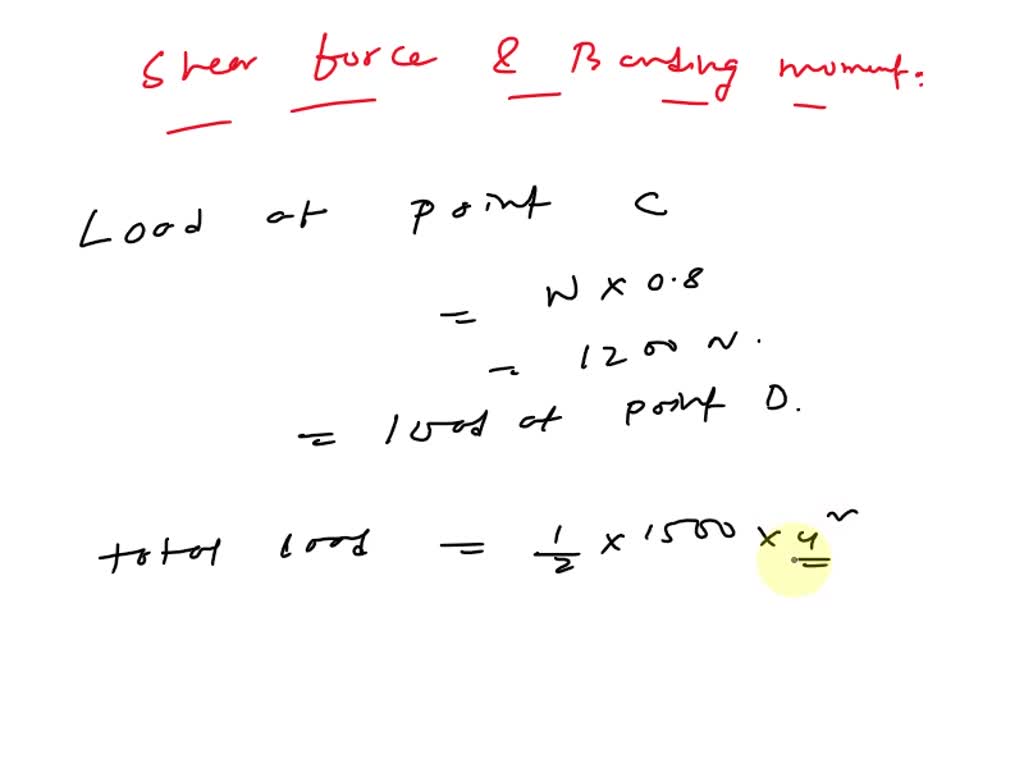 Shear force & Bending moment:
Load at point C
= W × 0.8
= 1200 N.
= load at point D.
total load = 1/2 × 1500 × 4~